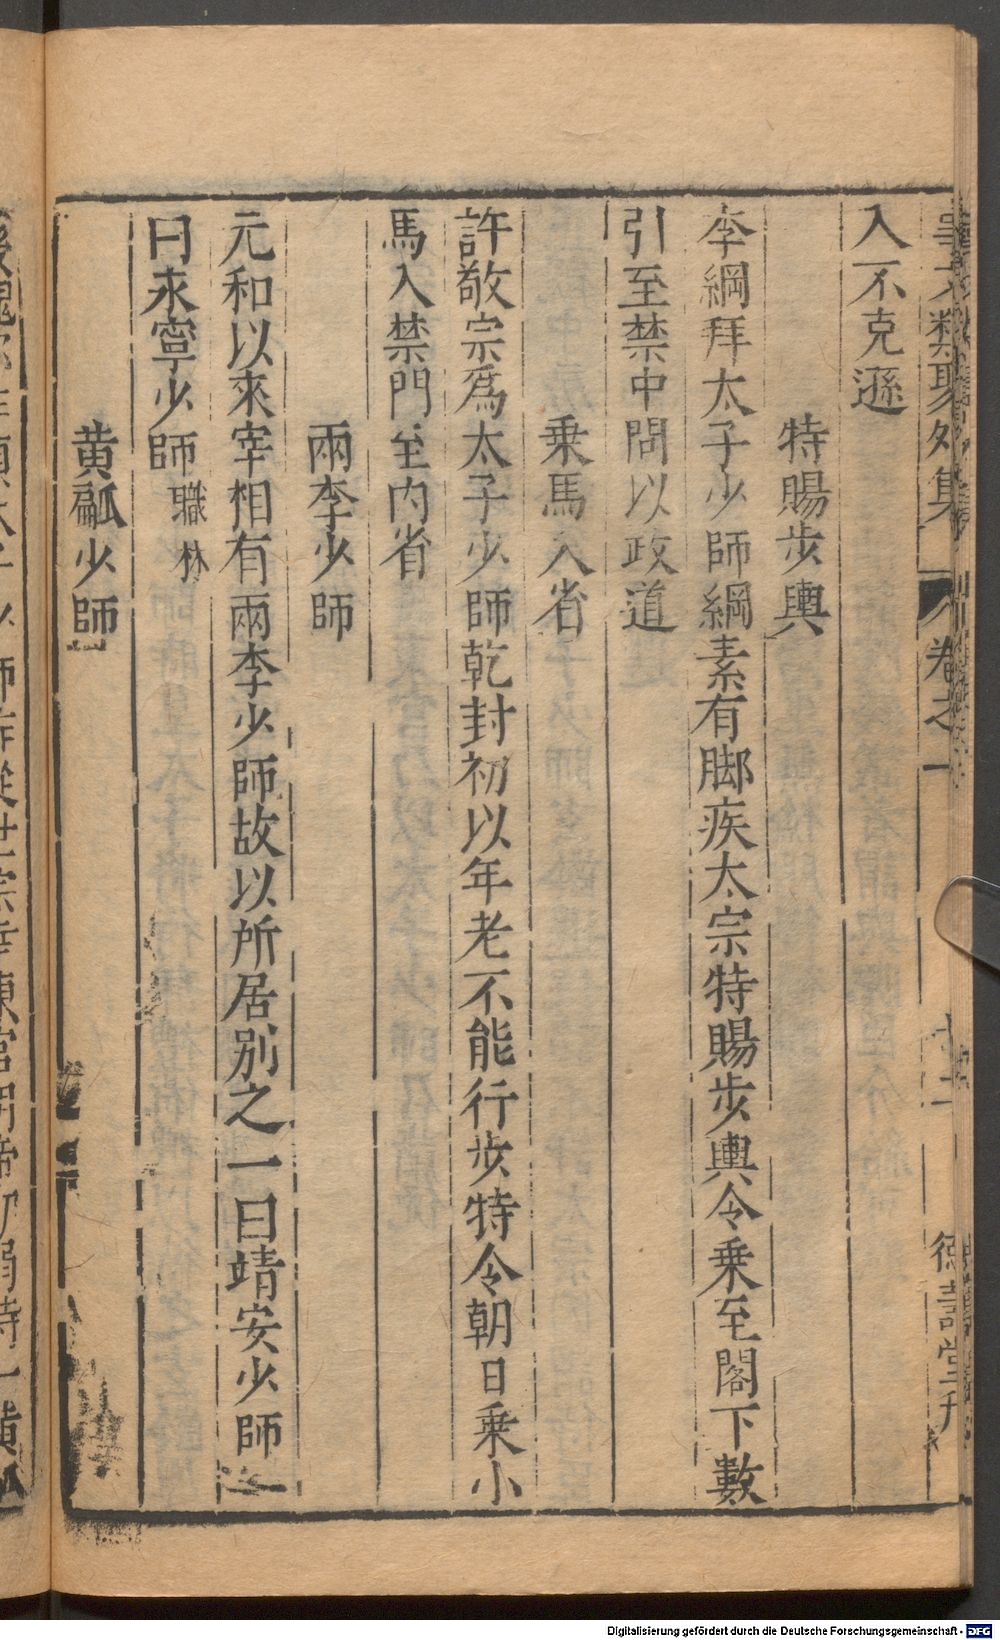 事文類聚外集 卷之一 十二 德壽堂刊
入不克遜
特賜步輿
李綱拜太子少師綱素有脚疾太宗特賜步輿令乘至閣下數
引至禁中問以政道
乘馬入省
許敬宗爲太子少師乾封初以年老不能行步特令朝日乘小
馬入禁門至内省
兩李少師
元和以來宰相有兩李少師故以所居別之一曰靖安少師一
曰永寧少師職林
黄瓢少師
Digitalisierung gefördert durch die Deutsche Forschungsgemeinschaft - DFG